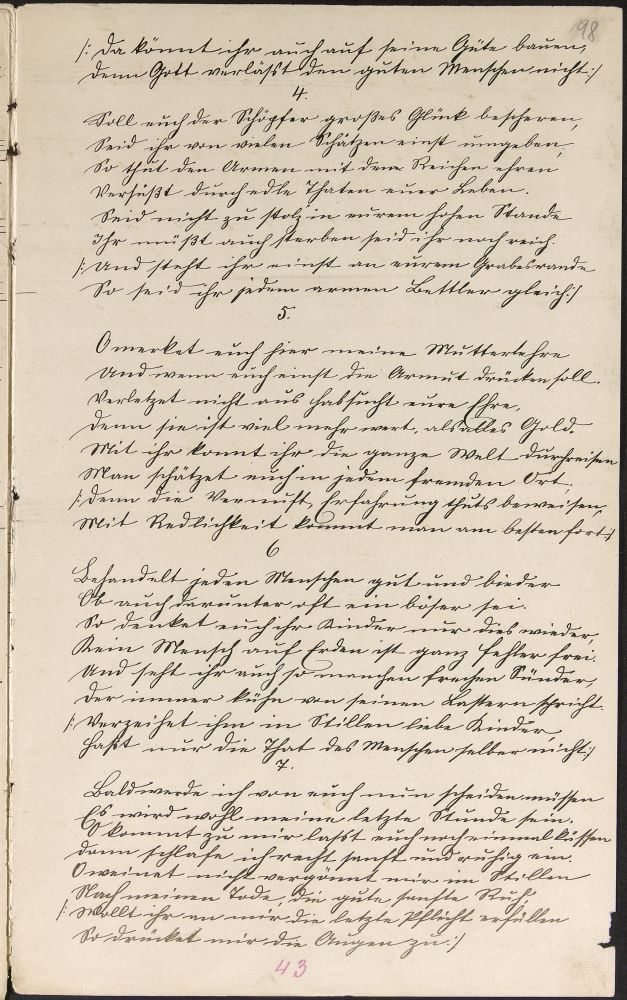 98
/: Da könnt ihr auch auf seine Güte bauen,
Denn Gott verläßt den guten Menschen nicht :/
4.
Soll euch der Schöpfer großes Glück bescheren,
Seid ihr von vielen Schätzen einst umgeben,
So thut den Armen mit dem Reichen ehren
Versüßt durch edle Thaten euer Leben.
Seid nicht zu stolz in eurem hohen Stande
Ihr müßt auch sterben seid ihr noch reich.
/: Und steht ihr einst an eurem Grabesrande
So seid ihr jedem armen Bettler gleich :/
5.
O merket euch hier meine Mutterlehre
Und wenn euch einst die Armut drücken soll.
Verletzet nicht aus Habsucht eure Ehre,
Denn sie ist viel mehr wert, als alles Gold.
Mit ihr könnt ihr die ganze Welt durchreisen
Man schätzet euch in jedem fremden Ort,
/: Denn die Vernunft, Erfahrung thuts beweisen,
Mit Redlichkeit kommt man am besten fort :/
6
Behandelt jeden Menschen gut und bieder
Ob auch darunter oft ein böser sei.
So denket euch ihr Kinder nur dies wieder,
Kein Mensch auf Erden ist ganz fehler frei.
Und seht ihr auch so manchen frechen Sünder,
Der immer kühn von seinen Lastern spricht.
/: Verzeihet ihm in Stillen liebe Kinder,
Haßt nur die That des Menschen selber nicht :/
7.
Bald werde ich von euch nun scheiden müssen
Es wird wohl meine letzte Stunde sein.
O kommt zu mir laßt euch noch einmal küssen
Dann schlafe ich recht sanft und ruhig ein.
O weinet nicht vergönnt mir im Stillen
Nach meinen Tode, die gute sanfte Ruh,
/: Wollt ihr an mir die letzte Pflicht erfüllen
So drücket mir die Augen zu :/
43